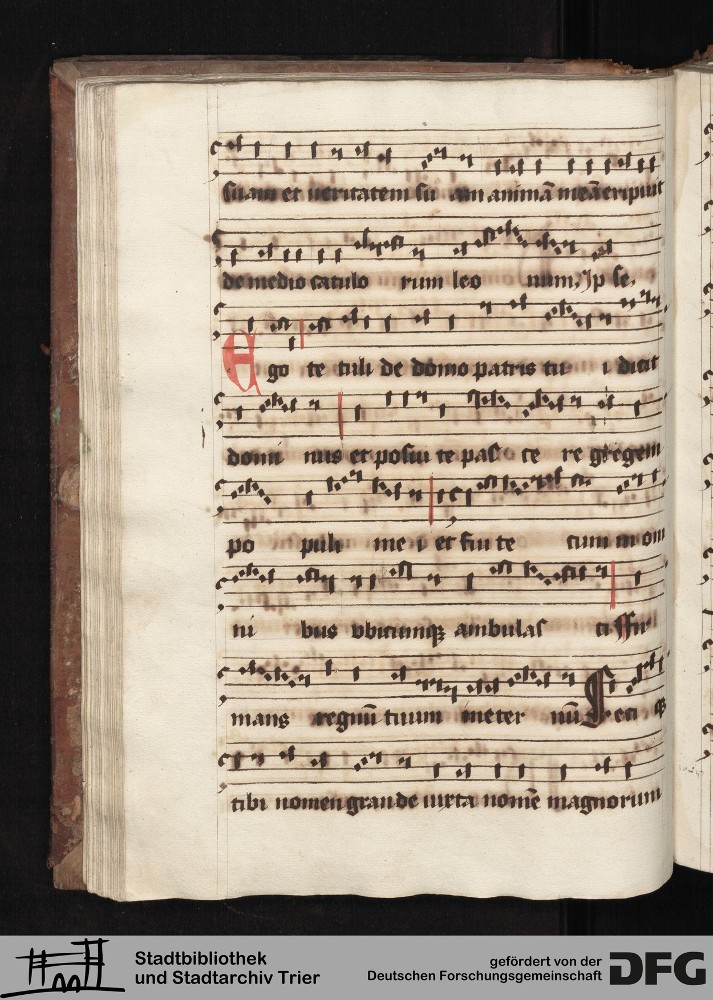 suam et veritatem su am animā meā eripuit
de medio catulo rum leo num, Ip se,
Ego te tuli de domo patris tu i dicit
domi nus et posui te pasc e re gregem
po puli me i et fui te cum in om
ni bus ubicumq ambulas ti ffir
mans regnū tuum in eter nū Feci q
tibi nomen grande iuxta nomē magnorum
Stadtbibliothek
und Stadtarchiv Trier
gefördert von der
Deutschen Forschungsgemeinschaft
DFG